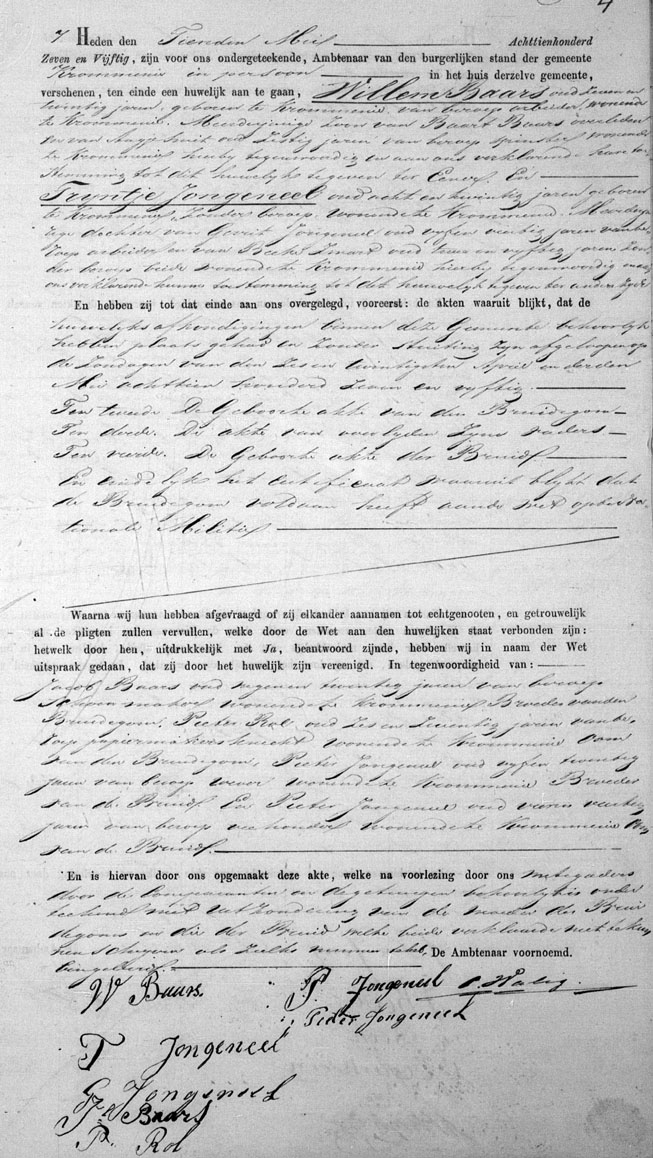 4
7 Heden den Tienden Mei Achttienhonderd
Zeven en Vijftig, zijn voor ons ondergeteekende, Ambtenaar van den burgerlijken stand der gemeente
Krommenie in persoon in het huis derzelve gemeente,
verschenen, ten einde een huwelijk aan te gaan, Willem Baars oud zeven en
twintig jaren, geboren te Krommenie, van beroep arbeider, wonende
te Krommenie. Meerderjarige Zoon van Baart Baars overleden
en van Smit oud Zestig jaren van beroep wonende
te Krommenie hierbij tegenwoordig en aan ons verklarende hare toe
stemming tot dit huwelijk te geven ter Eenre. En
Tryntje Jongeneel oud acht en twintig jaren geboren
te Krommenie, Zonder beroep, wonende te Krommenie. Meerderja
rige dochter van Gerrit Jongeneel oud vyf en jaren van be
roep arbeider en van Zwart oud en vyftig jaren Zon
der beroep beide wonende te Krommenie hierby tegenwoordig en aan
ons verklarende hunne toestemming tot dit huwelijk te geven ter andere Zyde
En hebben zij tot dat einde aan ons overgelegd, vooreerst: de akten waaruit blijkt, dat de
huwelijks afkondigingen binnen deze Gemeente behoorlyk
hebben plaats gehad en Zonder stuiting Zyn afgeloopen op
de Zondagen van den Zes en twintigsten April en derden
Mei achttien honderd Zeven en vyftig.
Ten tweede De Geboorte akte van den Bruidegom
Ten derde. De akte van overlyden Zyns vaders
Ten vierde. De Geboorte akte der Bruid
En eindelyk het certificaat waaruit blykt dat
de Bruidegom voldaan heeft aan de wet op de Na
tionale Militie
Waarna wij hun hebben afgevraagd of zij elkander aannamen tot echtgenooten, en getrouwelijk
al de pligten zullen vervullen, welke door de Wet aan den huwelijken staat verbonden zijn:
hetwelk door hen, uitdrukkelijk met Ja, beantwoord zijnde, hebben wij in naam der Wet
uitspraak gedaan, dat zij door het huwelijk zijn vereenigd. In tegenwoordigheid van:
Jacob Baars oud negen en twintig jaren van beroep
Schoenmaker, wonende te Krommenie Broeder van den
Bruidegom. Pieter Rol oud Zes en Zeventig jaren van be
roep papiermakersknecht wonende te Krommenie Oom
van den Bruidegom, Pieter Jongeneel oud vyf en twintig
jaren van beroep wever wonende te Krommenie Broeder
van de Bruid En Pieter Jongeneel oud veertig
jaren van beroep veehouder wonende te Krommenie Oom
van de Bruid.
En is hiervan door ons opgemaakt deze akte, welke na voorlezing door ons mitsgaders
door de Comparanten en de getuigen behoorlyk is onder
teekend met uitzondering van de moeder der Brui
degoms en die der Bruid welke beide verklaarde niet te kun
nen schryven als Zulks nimmer te hebben De Ambtenaar voornoemd.
W Baars. P Jongeneel
Pieter Jongeneel
T Jongeneel
G Jongeneel
Jb Baars
P. Rol